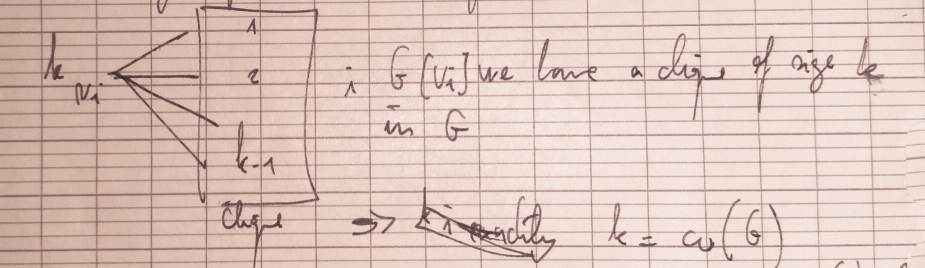 k
v_i
1
2
k-1
clique
i G[v_i] we have a clique of size k
in G
⇒ k = ω(G)